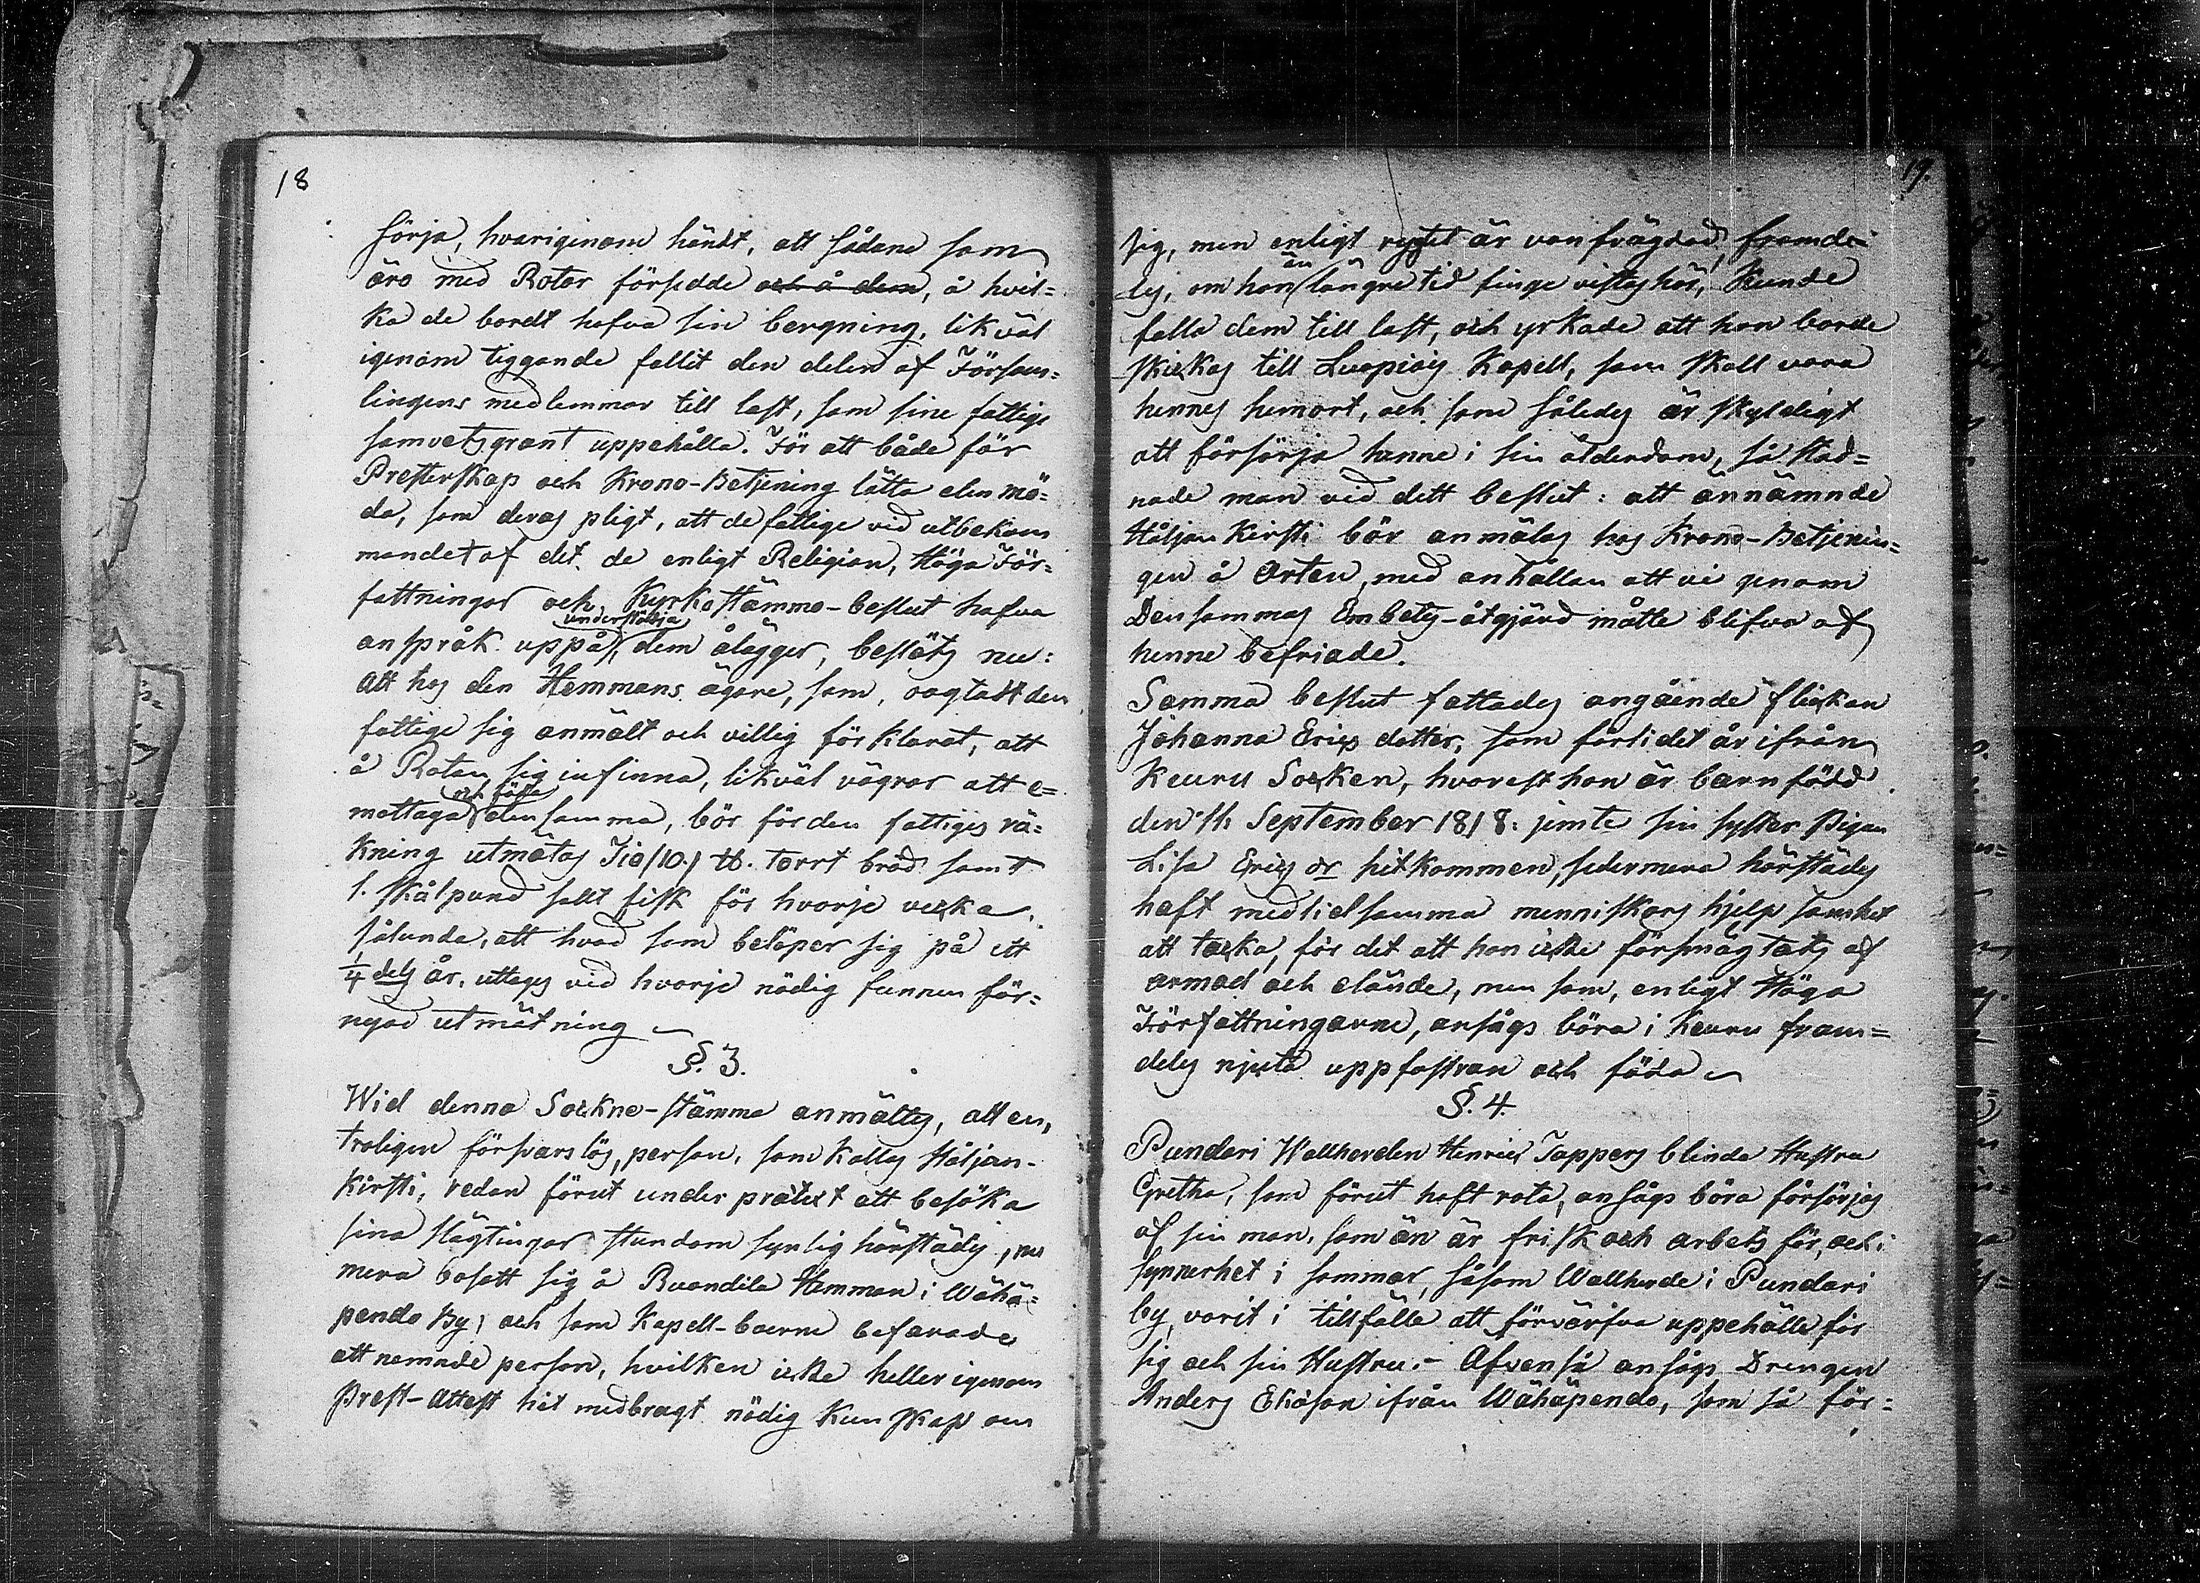 18
sörja, hvarigenom händt, att sådane som
äro med Rotar försedde och å dem, å hvil=
ka de bordt hafva sin bergning, likväl
igenom tiggande fallit den delen af Försam=
lingens medlemmar till last, som sine fattige
samvetsgrant uppehålla. För att både för
Presterskap och Krono-Betjening lätta den mö=
da, som deras pligt, att de fattige vid utbekom
mandet af det de enligt Religion, Höga För=
fattningar och Kyrkostämmo-beslut hafva
understödja
anspråk uppå, dem ålägger, beslöts nu:
Att hos den Hemmans ägare, som, oagtadt den
fattige sig anmält och villig förklarat, att
å Rotan sig infinna, likväl vägrar att e=
och föda
mottaga densamma, bör för den fattiges rä=
kning utmätas Tio /10/ ℔. torrt bröd samt
1. skålpund salt fisk för hvarje vecka,
sålunda, att hvad som belöper sig på ett
1/4 dels år, uttages vid hvarje nödig funnen för=
nyad utmätning
§. 3.
Wid denna Sockne-stämma anmältes, att en,
troligen försvarslös, person, som kallas Håljan-
Kirsti, redan förut under prätext att besöka
sina slägtingar stundom synlig härstädes, nu
mera bosatt sig å Ruandila Hemman i Wähä=
pendo By, och som Kapell-boerne befarade
att nemnde person, hvilken icke heller igenom
Prest-Attest hit medbragt nödig kunskap om
19.
sig, men enligt rygtet är vanfrägdad, framde=
än
les, om hon längre tid finge vistas här, kunde
falla dem till last, och yrkade att hon borde
skickas till Luopiois Kapell, som skall vara
hennes hemort, och som således är skyldigt
att försörja henne i sin ålderdom, så stad=
nade man vid dett beslut: att ännämnde
Håljan Kirsti bör anmälas hos Krono-Betjenin=
gen å Orten, med anhållan att vi genom
Densammas Embets-åtgjärd måtte blifva af
henne befriade.
Samma beslut fattades angående flickan
Johanna Erics dotter, som förlidet år ifrån
Keuru Socken, hvarest hon är barnfödd
den 11. September 1818. jemte sin syster Pigan
Lisa Erics dr hitkommen, sedermera härstädes
haft medlidsamma menniskors hjelp
att tacka, för det att hon icke försmägtats af
armod och elände, men som, enligt Höga
Författningarne, ansågs böra i Keuru fram=
deles njuta uppfostran och föda
§. 4.
Pundari Wallherden Henric Tappers blinda Hustru
Gretha, som förut haft rota, ansågs böra försörjas
af sin man, som än är frisk och arbets för, och i
synnerhet i sommar, såsom Wallherde i Pundari
by, varit i tillfälle att förvärfva uppehälle för
sig och sin Hustru.- Äfvenså ansågs Drengen
Anders Ekoson ifrån Wähäpendo, som så för=